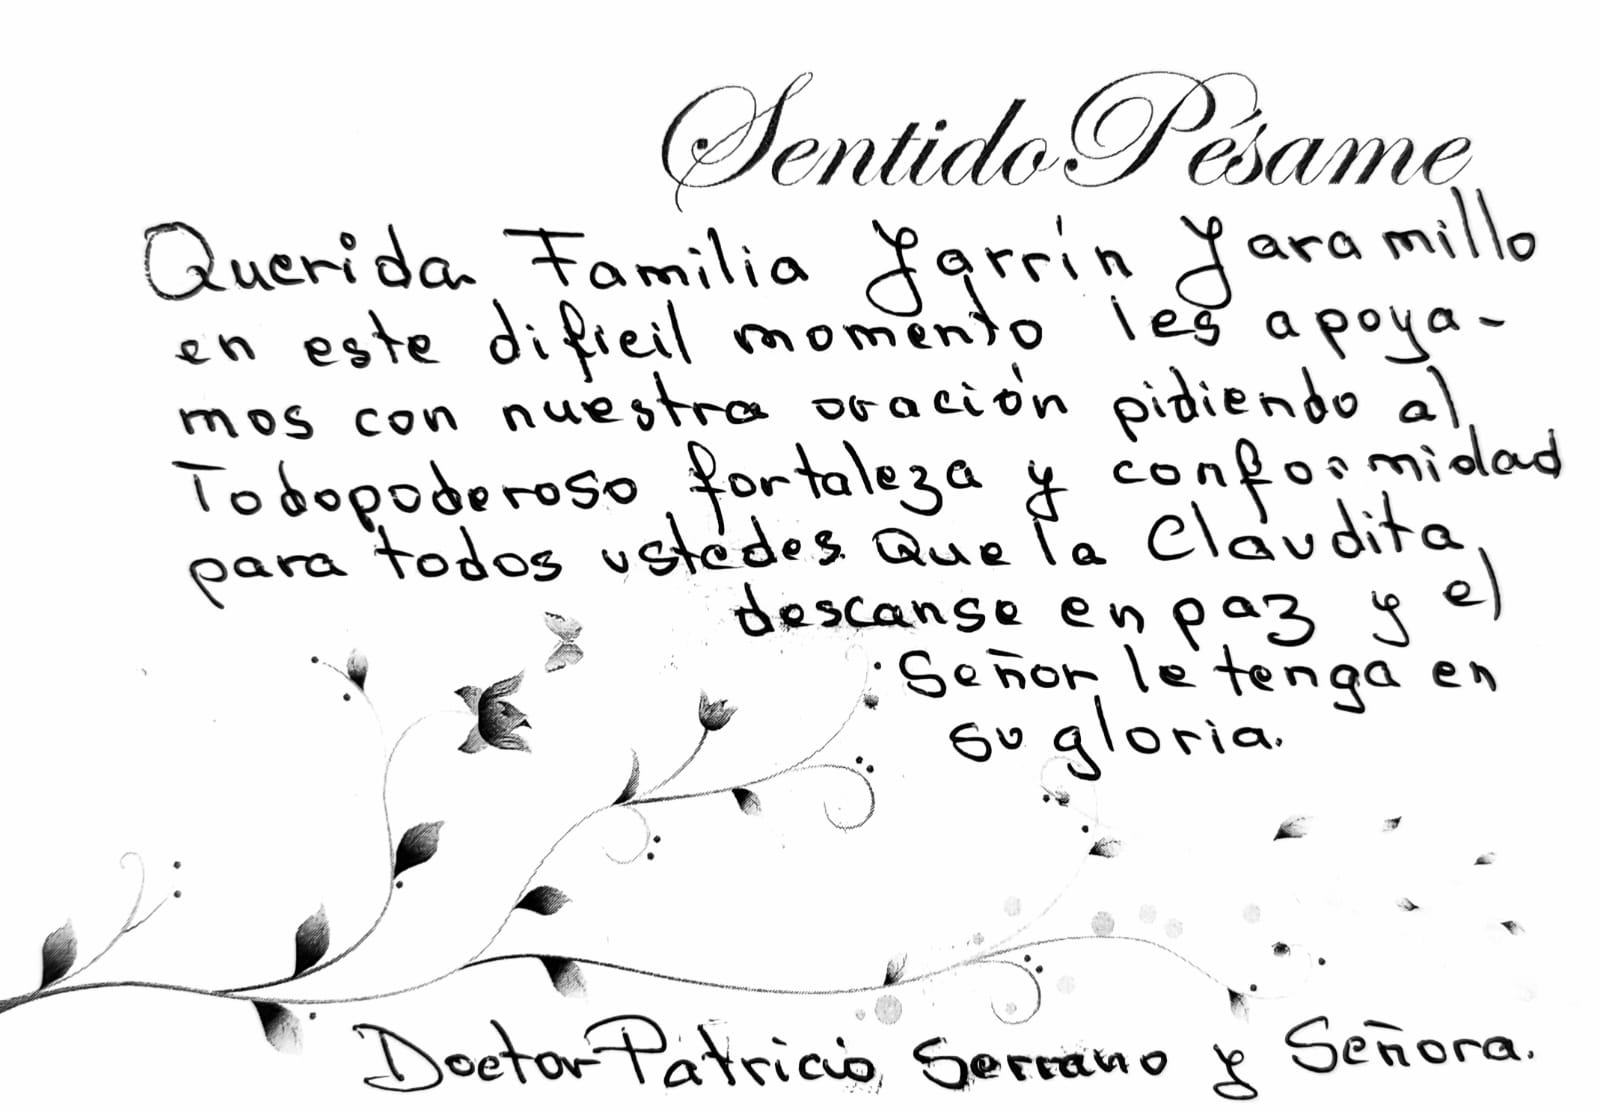 Sentido Pésame
Querida Familia Jarrín Jaramillo
en este dificil momento les apoya-
mos con nuestra oración pidiendo al
Todopoderoso fortaleza y conformidad
para todos ustedes. Que la Claudita,
descanse en paz y el
Señor le tenga en
su gloria.
Doctor Patricio Serrano y Señora.